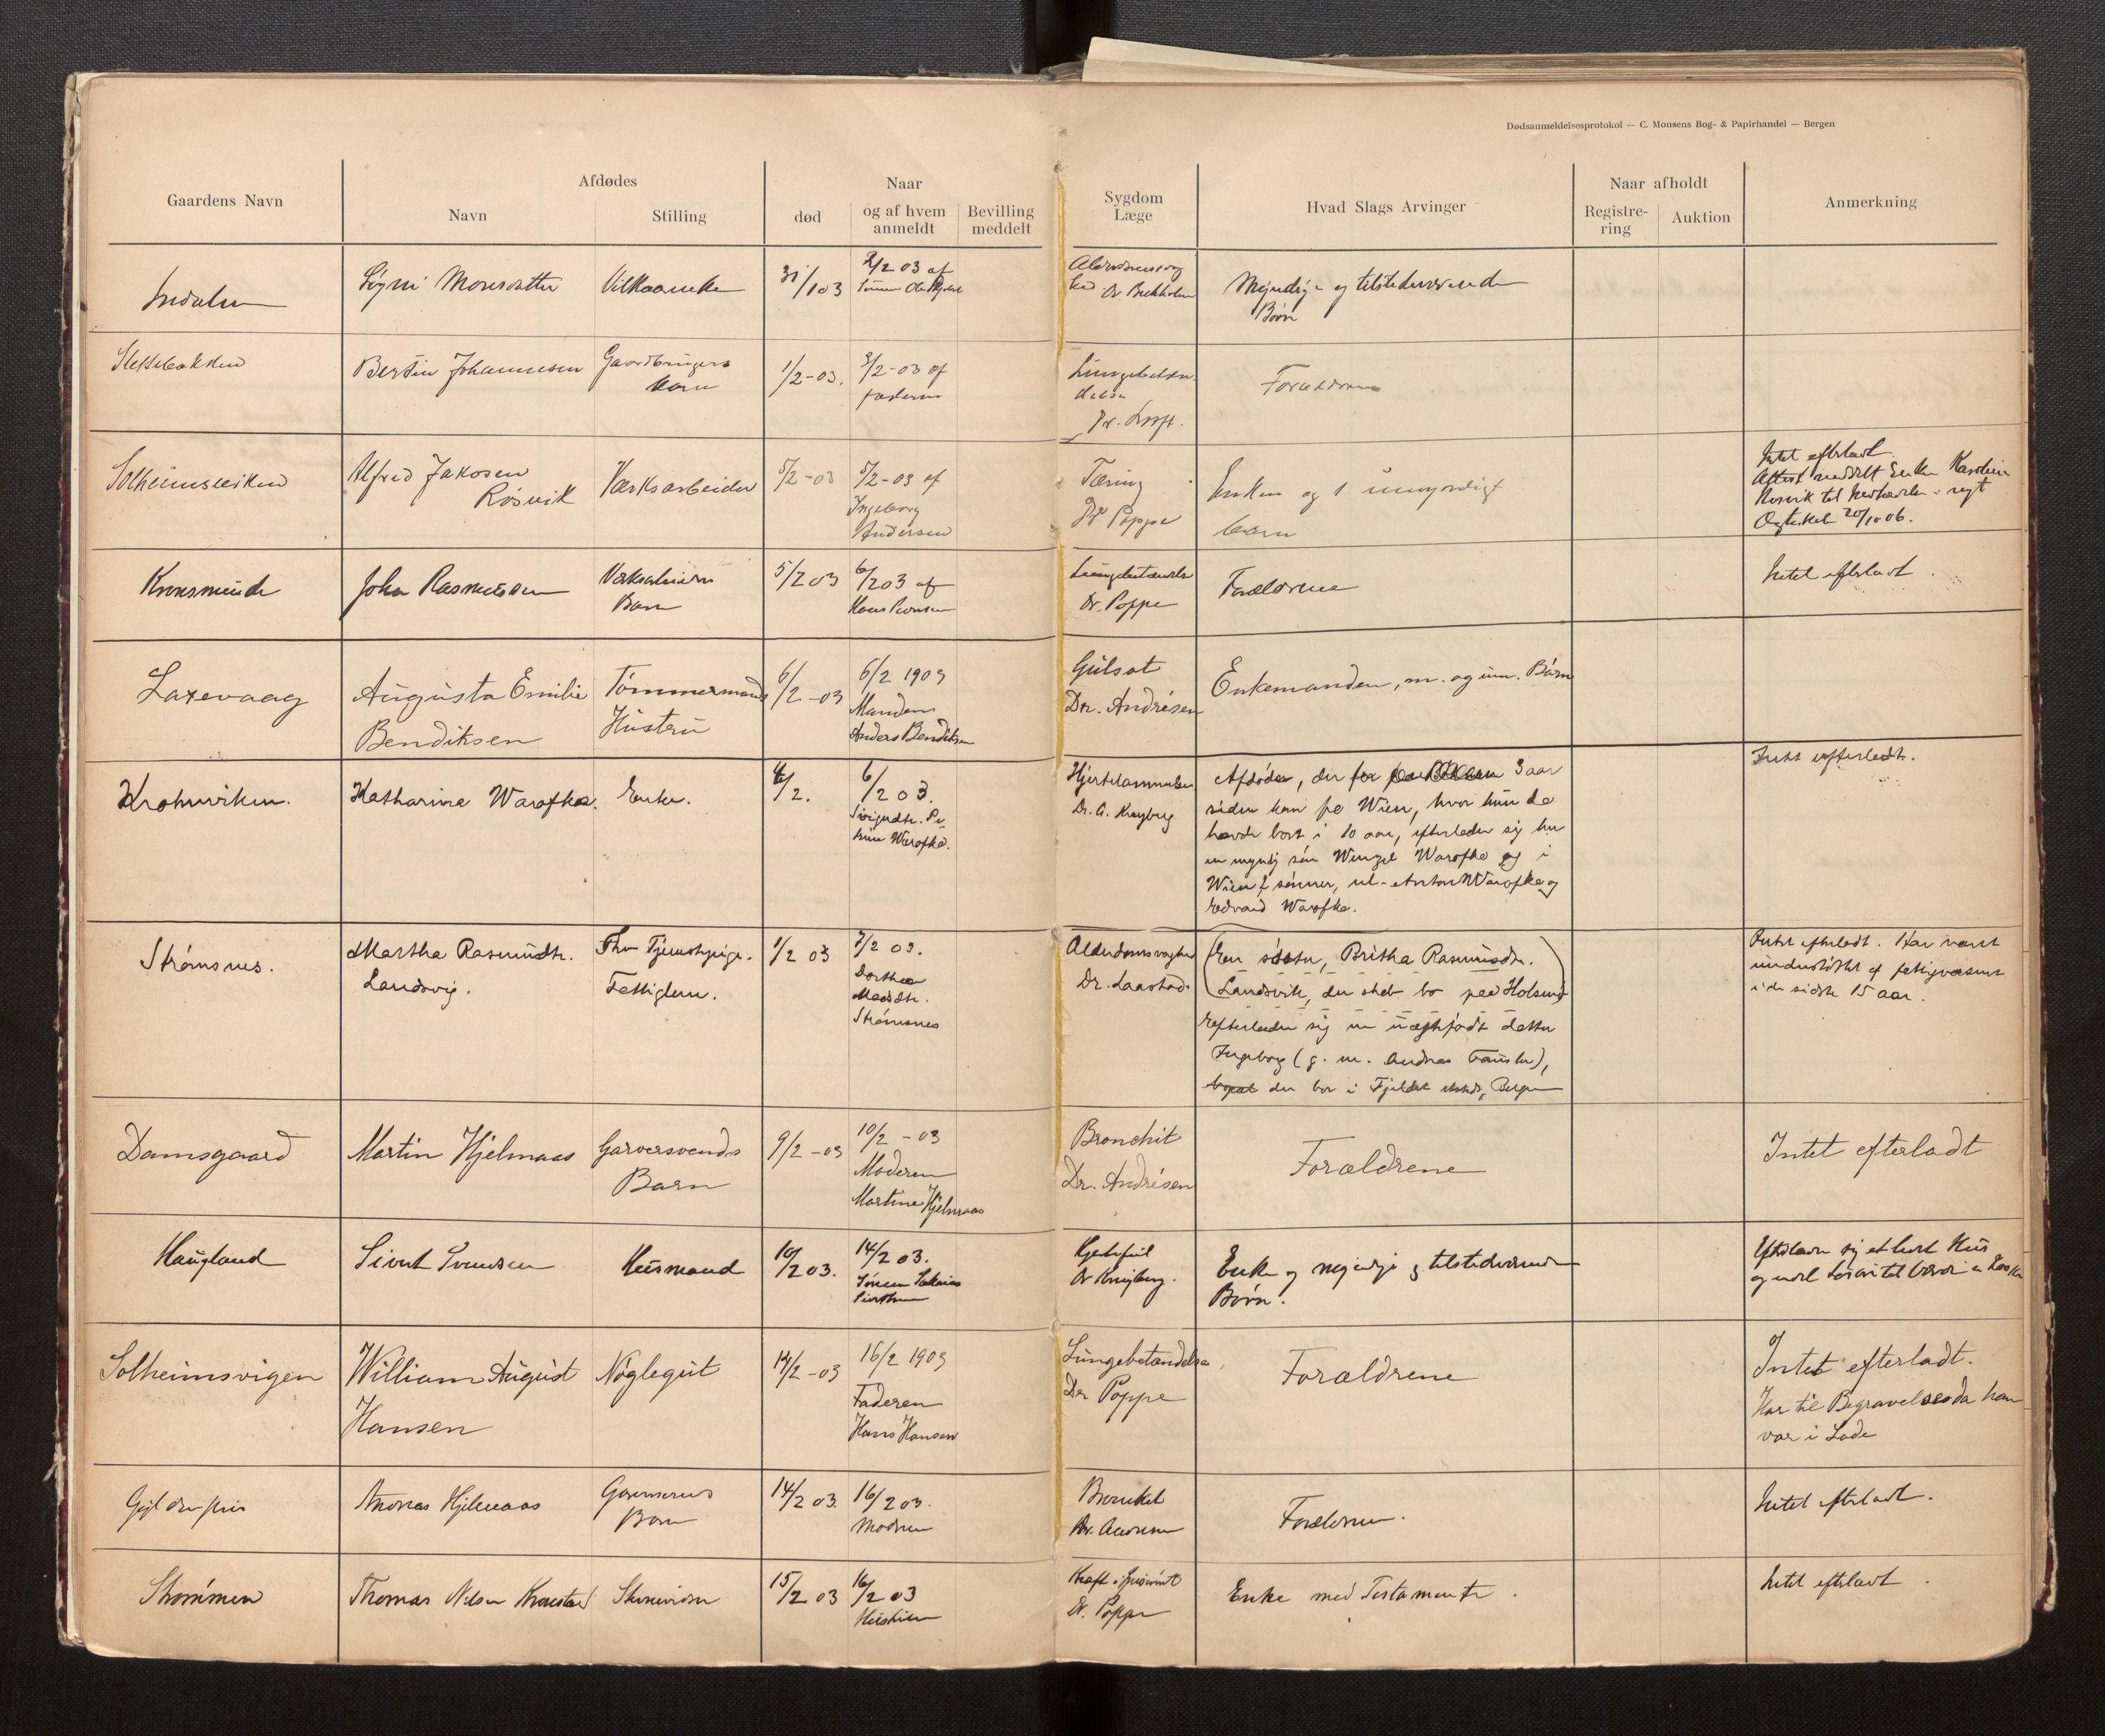 Dødsanmeldelsesprotokol — C. Monsens Bog- & Papirhandel — Bergen
Gaardens Navn
Afdødes
Navn
Stilling
død
Naar
og af hvem
anmeldt
Bevilling
meddelt
Sygdom
Læge
Hvad Slags Arvinger
Naar afholdt
Registre-
ring
Auktion
Anmerkning
Indalen
Signi Monsdatter
Vilkaarenke
31/1 03
2/2 03 af
Sønnen Ole
Dr
Myndige og tilstedeværende
Børn
Slettebakken
Bertin Johannesen
Gaardbrugers
barn
1/2-03.
3/2-03 af
faderen
Lungebetæn-
delse
Dr. Looft.
Forældrene
Solheimsviken
Alfred Jakosen
Rosvik
Værksarbeider
5/2-03
5/2-03 af
Ingeborg
Andersen
Tæring
Dr Poppe
Enken og 1 umyndigt
barn
Intet efterladt.
Attest meddelt Enken Karoline
Rosvik til
20/10 06.
John Rasmussen
Barn
5/2 03
6/2 03 af
Dr. Poppe
Forældrene
Intet efterladt.
Laxevaag
Augusta Emilie
Bendiksen
Tømmermands
Hustru
6/2-03
6/2 1903
Manden
Anders Bendiksen
Gulsot
Dr. Andrésen
Enkemanden, m. og um. Børn
Krohnviken.
Katharina Warofka.
Enke.
6/2.
6/2 03.
Warofka.
Dr. G. Kreyberg
Afdøde, der for 3 aar
siden kom fra Wien, hvor hun da
havde bort i 10 aar, efterlader sig her
en myndig søn Wenzel Warofka og i
Wien 2 sønner, nl- Anton Warofka og
Edvard Warofka.
Intet efterladt.
Strømsnes.
Martha Rasmusdtr.
Landsvig.
Fhv Tjenestepige.
Fattiglem.
1/2 03
7/2 03.
Dorthea
Madsdtr.
Strømsnes
Alderdomsvaghed
Dr. Laastad.
(En søster, Britha Rasmusdtr.
Landsvik, der bor paa Holsund)
Efterlader sig en uægtefødt datter
Ingeborg (g. m. Andreas ),
der bor i Bergen
Intet efterladt. Har været
understøttet af fattigvæsenet
i de sidste 15 aar.
Damsgaard
Martin Hjelmaas
Garversvends
Barn
9/2-03
10/2-03
Moderen
Martine Hjelmaas
Bronchit
Dr. Andrésen
Forældrene
Intet efterladt
Haugland
Sivert Svendsen
Husmand
10/2 03.
14/2 03.
Sønnen
Dr Kreyberg.
Enke og myndige og tilstedeværende
Børn.
Efterlader sig et lidet Hus
Solheimsvigen
William August
Hansen
Nøglegut
14/2-03
16/2 1903
Faderen
Hans Hansen
Lungebetændelse
Dr Poppe
Forældrene
Intet efterladt.
Har til Begravelse da han
var i Lade
Andreas Hjelmaas
Barn
14/2 03.
16/2 03.
Moderen
Dr. Andresen
Forældrene.
Intet efterladt.
Strømmen
Thomas Nilsen
15/2 03
16/2 03
Dr. Poppe
Enke med Testamente.
Intet efterladt.